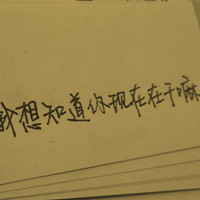 我想知道你现在在干嘛